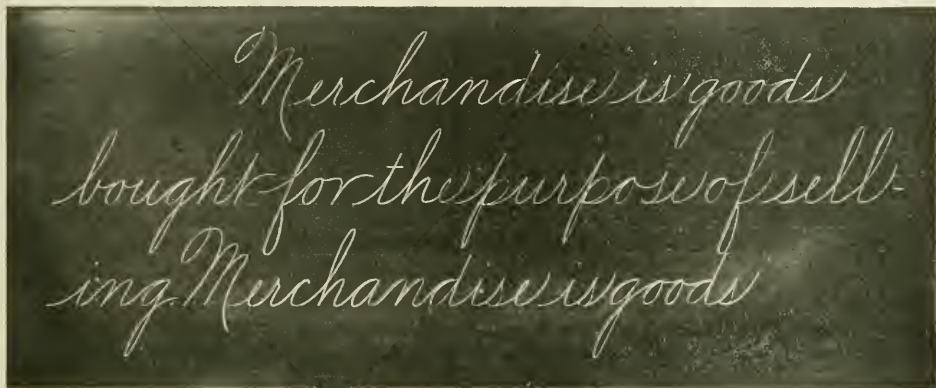 Merchandise is goods
bought for the purpose of sell-
ing Merchandise is goods